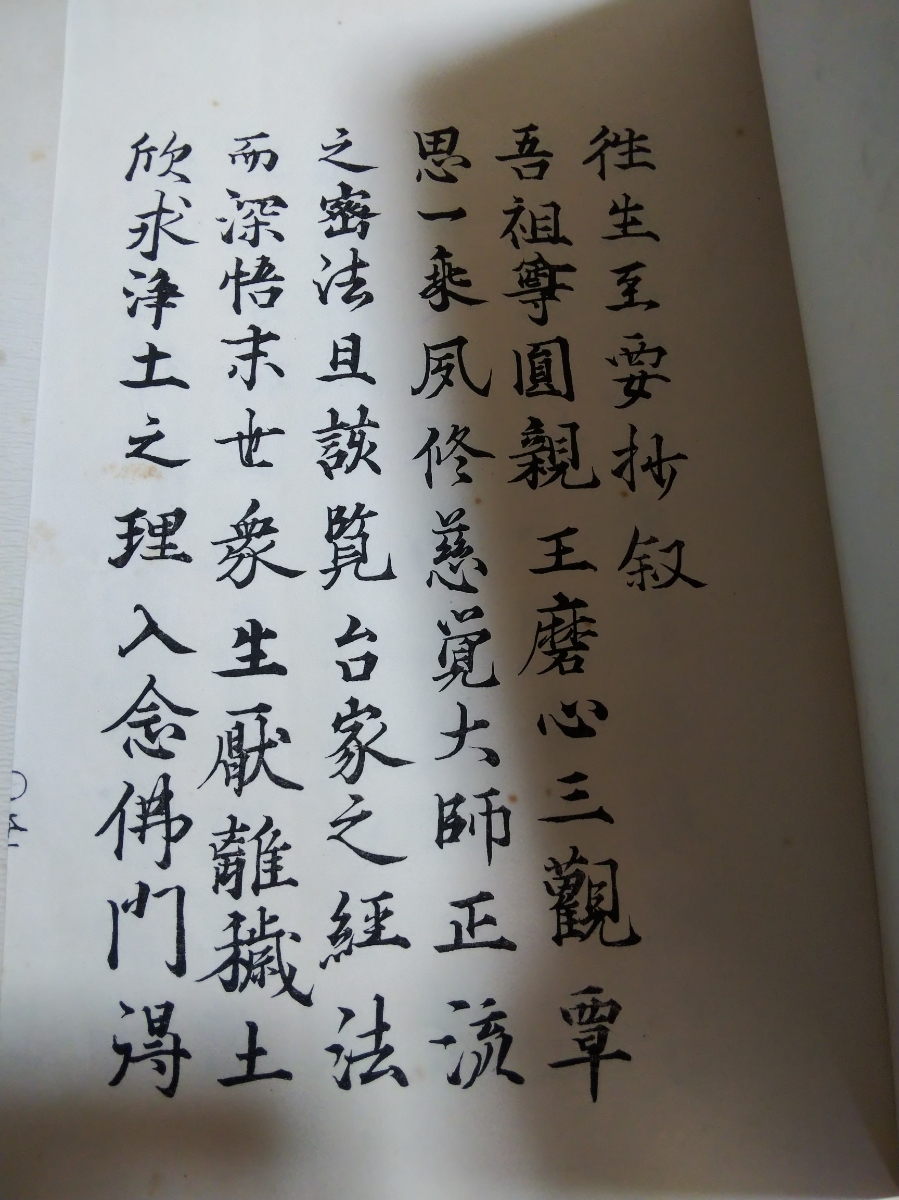 往生至要抄叙
吾祖尊圓親王磨心三觀覃
思一乘夙修慈覺大師正流
之密法且該覧台家之經法
而深悟末世衆生厭離穢土
欣求淨土之理入念佛門得